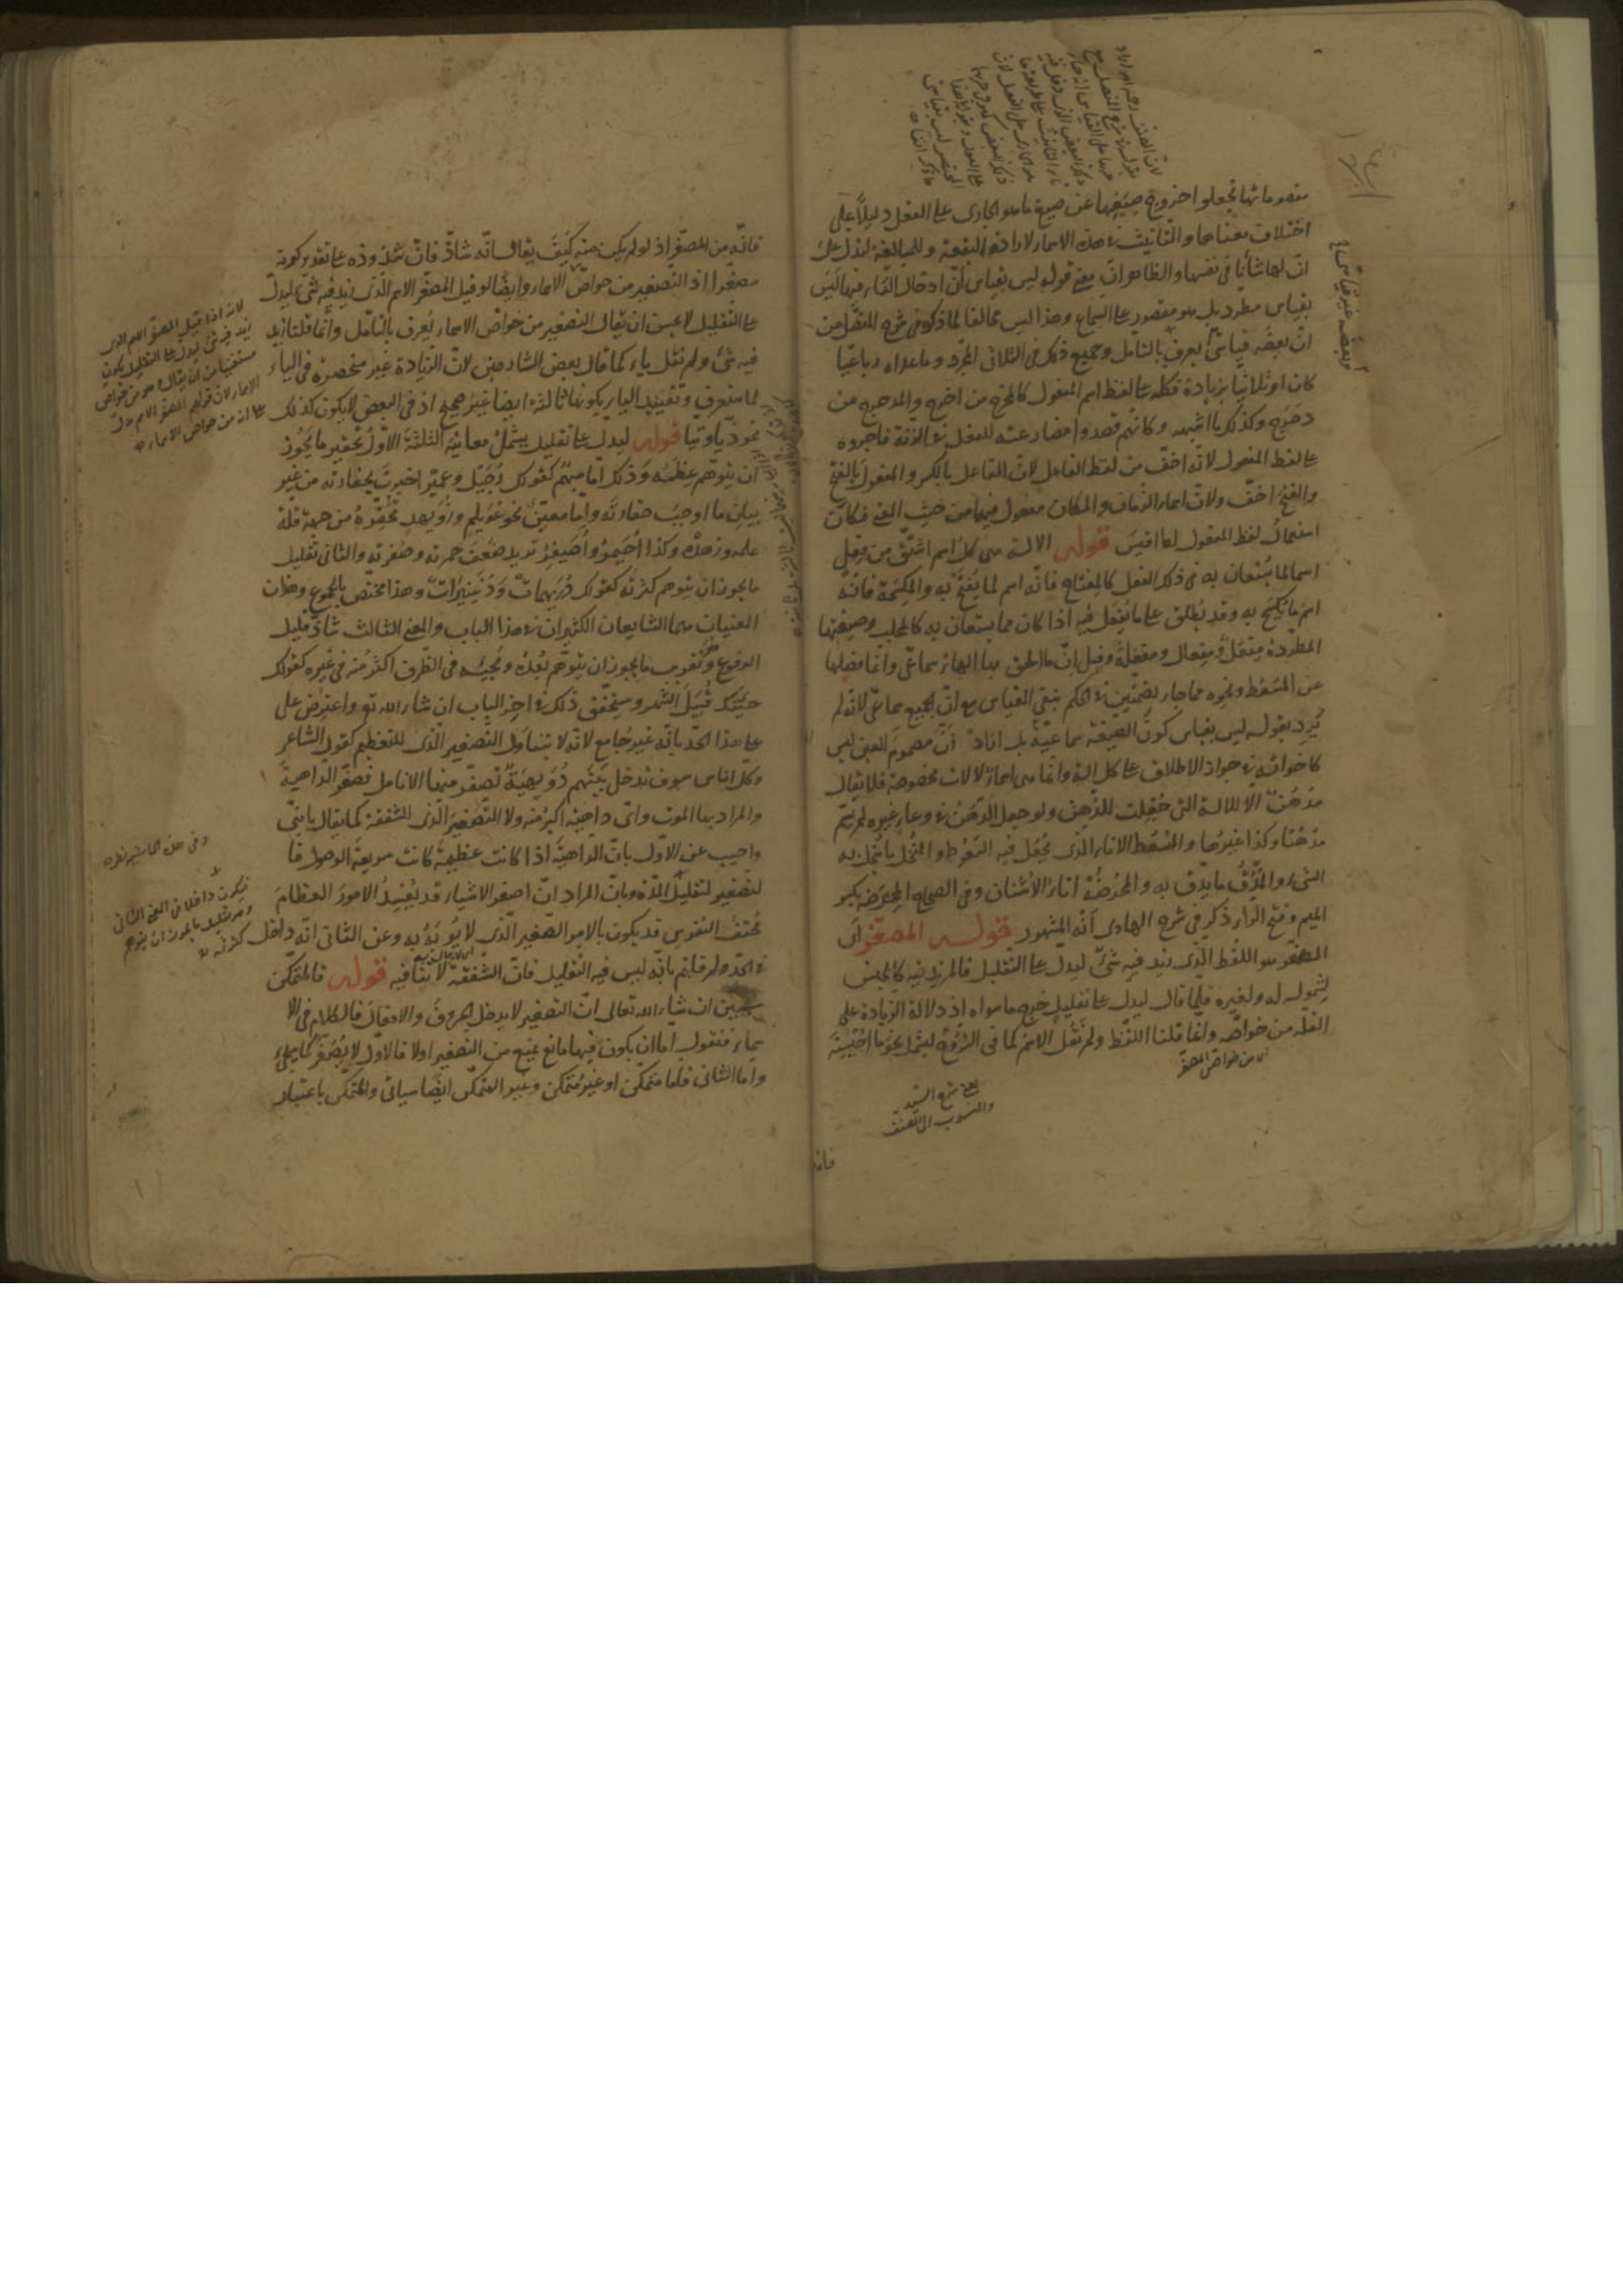 متصوراتها فجعلوا خروج صيغها عن صيغة ما هو الجاري على الفعل دليلاً على
اختلاف معناها والتأنيث في هذه الاسماء لارادة البقعة وللمبالغة لتدل على
انّ لها شأنا في نفسها والظاهر انّ معنى قوله ليس بقياس أنّ ادخال التاء فيها ليس
بقياس مطرد بل هو مقصور على السماع وهذا ليس مخالفا لما ذكر في شرح المفصّل من
انّ بعضه قياسيٌّ يعرف بالتأمل وجميع ذلك في الثلاثي المجرّد وما عداه رباعيّا
كان او ثلاثيا بزيادة فكله على لفظ اسم المفعول كالمخرج من اخرج والمدحرج من
دحرج وكذلك ما اشبهه وكانهم قصدوا مضارعته للفعل في الزنة فاجروه
على لفظ المفعول لانّه اخفّ من لفظ الفاعل لانّ الفاعل بالكسر والمفعول بالفتح
والفتح اخفّ ولانّ اسماء الزمان والمكان مفعول فيها من حيث المعنى فكان
استعمال لفظ المفعول لها اقيس قوله الالة هي كلُّ اسم اشتقّ من فعل
اسما لما يُستعان به في ذلك الفعل كالمفتاح فانّه اسم لما يُفتح به والمكسحة فانّه
اسم ما يُكسَح به وقد يُطلق على ما يُفعل فيه اذا كان مما يستعان به كالمحلب وصيغتها
المطّردة مِفعَلٌ ومِفعال ومفعلة وقيل انّ ما الحق بها الهاء سماعيّ وانّما فصلها
عن المُسعُط ونحوه مما جاء بضمتين في الحكم بنفي القياس مع انّ الجميع سماعيّ لانّه لم
يُرِد بقوله ليس بقياس كونَ الصيغة سماعيّة بل اراد أنّ مضموم العين ليس
كاخواته في جواز الاطلاق على كل الة وانّما هي اسماءٌ لالات مخصوصة فلا يقال
مُدهُنٌ الّا للالة التي جُعِلت للدُهن ولو جعل الدهن في وعاء غيره لم يُسمّ
مدهُنا وكذا غيرُها والمُسعُط الاناء الذي يُجعَل فيه السَعُوط والمُنخُل ما يُنخل به
الشيء والمُدُقُّ ما يدقّ به والمُحرُضَة اناءُ الأُشنان وفي الصحاح المِحرَضة بكسر
الميم وفتح الراء ذكر في شرح الهادي أنّه المشهور قوله المصغّر اى
المصغّر هو اللفظ الّذى زيد فيه شيءٌ ليدلّ على التقليل فالمزيد فيه كالجنس
لِشموله له ولغيره فلمّا قال ليدل على تقليل خرج ما سواه اذ دلالة الزيادة على
القلّة من خواصّه وانّما قلنا اللفظ ولم نَقُل الاسم كما في الشروح ليشمل نحو ما اُحَيْسِنَه
اى من خواصّ المصغّر
يعني شرح السيّد
والمنسوب الى المصنّف
فانه
وبعضه غير قياسيّ
فانّه من المصغّر اذ لو لم يكن منه كَيفَ يقال انّه شاذّ فانّ شذوذه على تقدير كونه
مصغّرا اذ التصغير من خواصّ الاسماء وايضًا لو قيل المصغّر الاسم الّذى زيد فيه شيءٌ ليدلّ
على التقليل لا يحسن ان يقال التصغير من خواصّ الاسماء يُعرف بالتأمّل وانّما قلنا زيد
فيه شيءٌ ولم نقل ياء كما قال بعض الشارحين لانّ الزيادة غير منحصرة في الياء
لما ستعرف وتقييد الياء بكونها ثالثة ايضا غيرُ صحيح اذ في البعض لا يكون كذلك
نحو ذيّا وتيّا قوله ليدلّ على تقليل يشملُ معانيَه الثلثةَ الاوّلُ تحقير ما يَجُوز
ان يتوهّم عِظَمُه وَذلك امّا مبهمٌ كقولك رُجَيْل وعُمَيْر اخبرتَ بحقارته من غير
بيانِ ما اوجبَ حقارتَه وامّا معيّنٌ نحو عُوَيلِم وزُوَيهد تُحَقّرهُ من جهة قلة
علمه وزهده وكذا اُحَيمِرُ واُصَيفِرُ تريد ضعفَ حمرته وصُفرته والثانى تقليل
ما يجوز ان يتوهم كثرتُه كقولك دُرَيهماتٌ وَدُنَينيراتٌ وهذا مختصّ بالجموع وهذان
المعنيان هما الشايعان الكثيران في هذا الباب والمعنى الثالث شاذّ قليل
الوقوع وهو تقريب ما يجوز ان يتوهّم بُعدُه ومَجيئه في الظّرف اكثرُ منه في غيره كقولك
جئتك قُبَيْلَ الشهر وستحقّق ذلك في اخِر الباب ان شاء الله تع واعتُرِض على
على هذا الحدّ بانّه غير جامع لانّه لا يتناول التصغير الّذى للتعظيم كقول الشاعر
وكلّ اناس سوف تدخل بَيْنَهم دُوَيهِيَةٌ تصفرّ منها الانامل فصغّر الداهية
والمراد بها الموت وايّ داهية اكبرُ منه ولا التّصغيرَ الّذى للشفقة كما يقال يا بُنَيّ
واجيب عن الاوّل بانّ الداهيةَ اذا كانت عظيمةً كانت سريعةَ الوصول فا
لتصغير لتقليل المدّة وبانّ المراد انّ اصغر الاشياء قد يُفسِدُ الامورَ العظامَ
فحتفُ النفوس قد يكون بالامر الصّغير الّذى لا يُؤبَهُ به وعن الثانى انّه داخل
في الحدّ ولم قلتم بانّه ليس فيه التقليل فانّ الشفقة لا تنافيه قوله فالمتمكّن
سيبين ان شاء الله تعالى انّ التصغير لا يدخل الحروفَ والافعالَ فالكلام في الا
سماء فنقول اما ان يكون فيها مانع يمنع من التصغير اولا فالاول لا يُصَغّرُ كما يجيءُ
وامّا الثانى فاما متمكّن او غير متمكن وغير المتمكّن ايضًا سيأتى والمتمكن باعتبار
لانه اذا قيل المصغّر الاسم الذى
زيد فيه شيء ليدل على التقليل يكون
مستغنيا من ان يقال وهو من خواص
الاسماء لان قولهم المصغّر الاسم دلّ
على انه من خواص الاسماء
وفي هذه الحاشية نظر
فيكون داخلا في المعنى الثانى
وهو تقليل ما يجوز ان يتوهم
كثرته